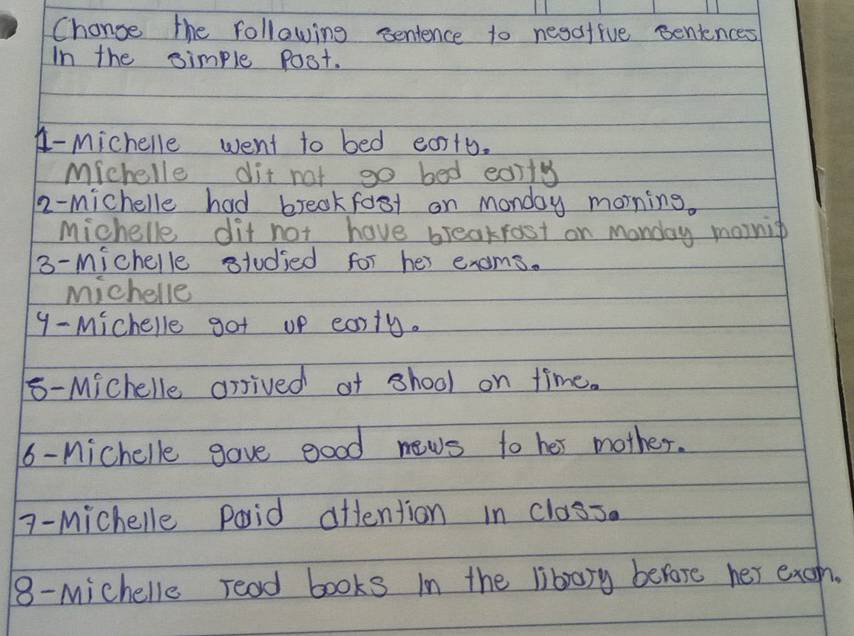 Change the following sentence to negative sentences
In the simple Past.
1-Michelle went to bed earty.
Michelle dit not go bed earty
2-Michelle had breakfast on Monday morning.
Michelle dit not have breakfast on Monday mornig
3-Michelle studied for her exams.
Michelle
4-Michelle got up earty.
5-Michelle arrived at shool on time.
6-Michelle gave good news to her mother.
7-Michelle Paid attention in class.
8-Michelle read books in the library before her exam.